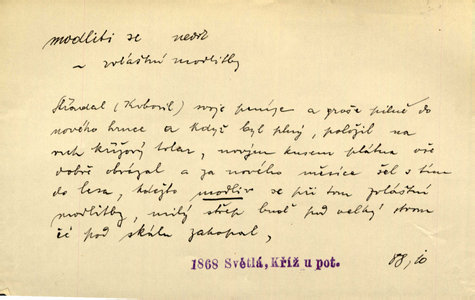 modliti se nedok
~ zvláštní modlitby
Střádal (Kobosil) svoje peníze a groše pilně do
nového hrnce a když byl plný, položil na
vrch křížový tolar, novým kusem plátna vše
dobře obvázal a za nového měsíce šel s tím
do lesa, kdežto modliv se při tom zvláštní
modlitby, milý střep buď pod velký strom
či pod skálu zakopal,
1868 Světlá, Kříž u pot.
88, 10